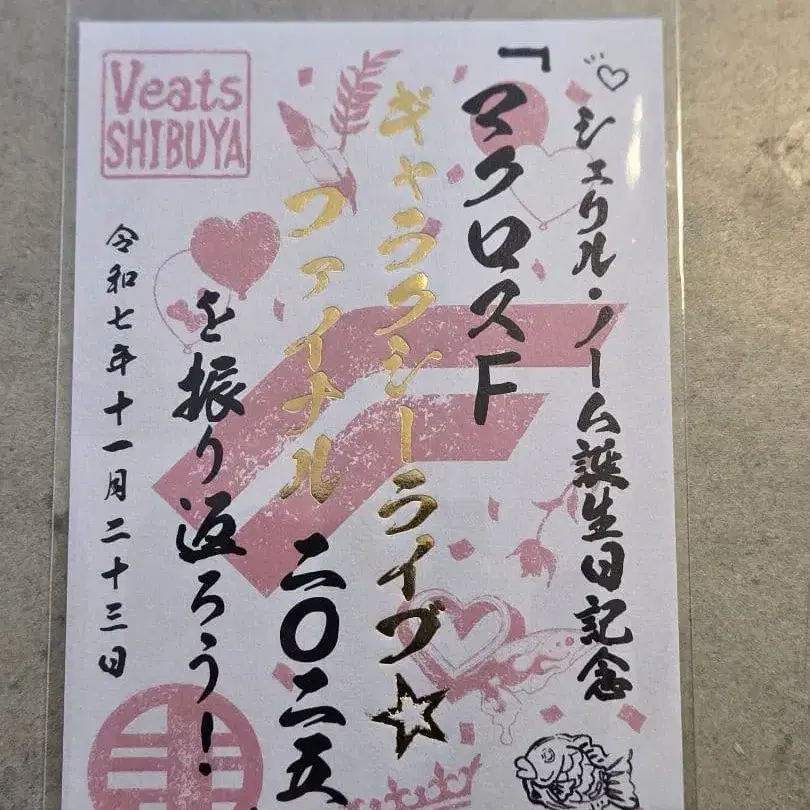 シェリル・ノーム誕生日記念
「マクロスF
ギャラクシーライブ☆
ファイナル 二〇二五
を振り返ろう!
令和七年十一月二十三日
Veats
SHIBUYA